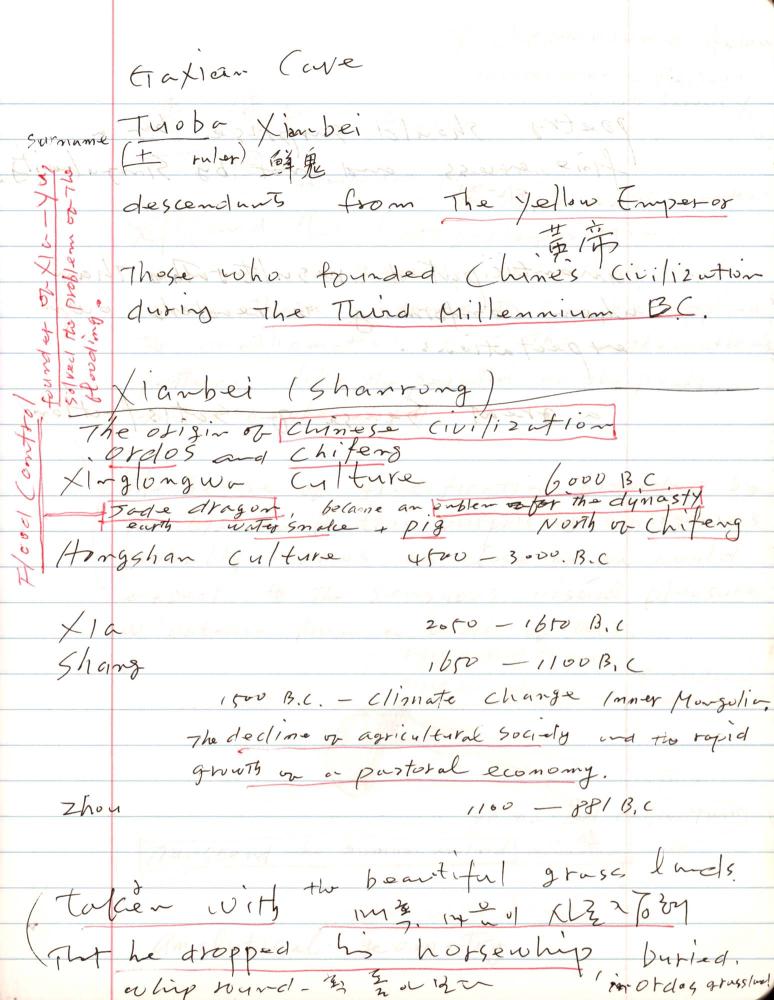 Gaxian Cave
Tuoba Xianbei
surname
(土 ruler) 鮮鬼
descendants from The Yellow Emperor
黃帝
Those who founded Chines Civilization
during the Third Millennium B.C.
founder of Xia - Yu,
solved the problem of the
flooding.
Flood Control
Xianbei (Shanrong)
The origin of Chinese civilization
Ordos and Chifeng
Xinglongwa Culture 6000 B.C.
Jade dragon, became an emblem for the dynasty
earth water snake + pig North of Chifeng
Hongshan Culture 4500 - 3000. B.C
Xia 2050 - 1650 B.C
Shang 1650 - 1100 B.C
1500 B.C. - Climate Change Inner Mongolia.
The decline of agricultural Society and the rapid
growth of a pastoral economy.
Zhou 1100 - 881 B.C
taken with the beautiful grass lands.
that he dropped his horsewhip, buried.
in Ordos grassland
whip round - 휙 돌아보다